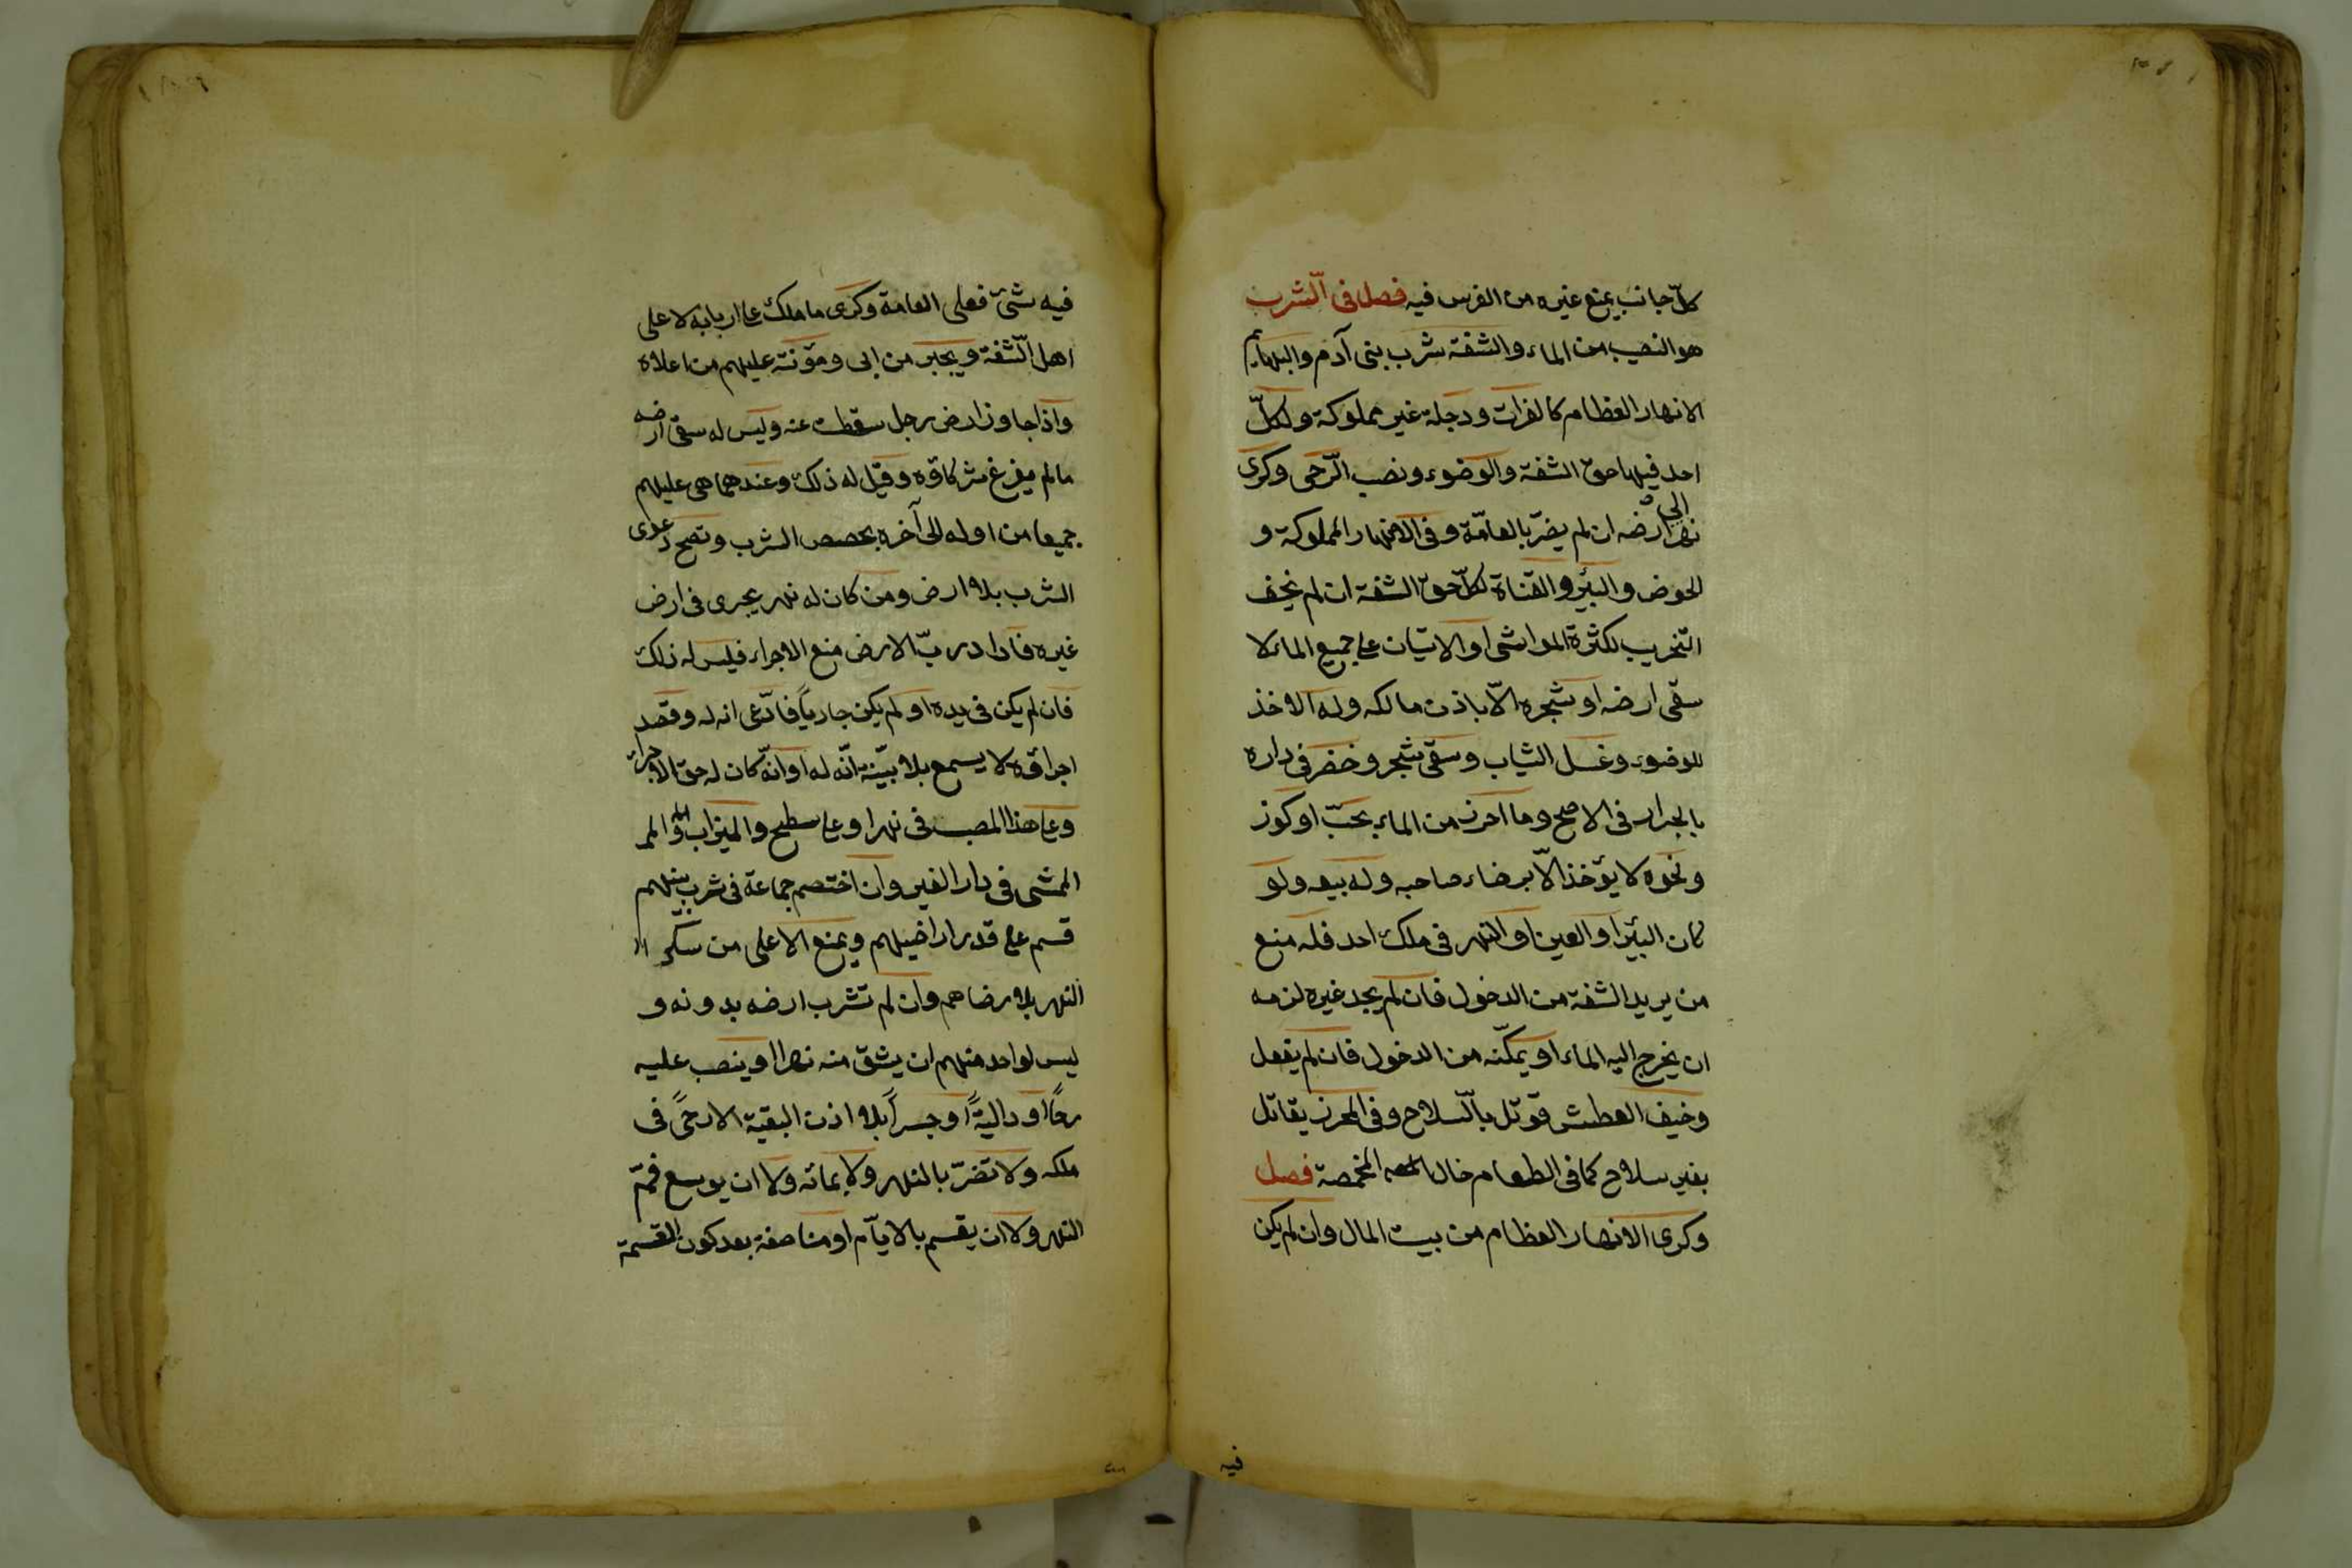 كلّ جانب يمنع غيره من الغرس فيه فصل فى الشّرب
هو النصيب من الماء والشفة شرب بنى آدم والبهايم
الانهار العظام كالفرات ودجلة غير مملوكة ولكلّ
احد فيها حقّ الشفة والوضوء ونصب الرّحى وكرى
نهر الى ارضه ان لم يضرّ بالعامّة وفى الانهار المملوكة و
الحوض والبئر والقناة لكلّ حقّ الشفة ان لم يخف
التّخريب لكثرة المواشى او الاتيان على جميع الماء لا
سقى ارضه او شجره الّا باذن مالكه وله الاخذ
للوضوء وغسل الثياب وسقى شجر وخضر فى داره
بالجرار فى الاصح وما احرز من الماء بحبّ او كوز
ونحوه لا يؤخذ الّا برضاء صاحبه وله بيعه ولو
كان البئر او العين او النهر فى ملك احد فله منع
من يريد الشفة من الدخول فان لم يجد غيره لزمه
ان يخرج اليه الماء او يمكّنه من الدخول فان لم يفعل
وخيف العطش قوتل بالسّلاح وفى المحرز يقاتل
بغير سلاح كما فى الطعام حال المخمصة فصل
وكرى الانهار العظام من بيت المال وان لم يكن
فيه
فيه شئ فعلى العامة وكرى ما ملك على اربابه لا على
اهل الشّفة ويجبر من ابى ومؤنته عليهم من اعلاه
واذا جاوز ارض رجل سقطت عنه وليس له سقى ارضه
ما لم يفرغ شركاؤه وقيل له ذلك وعندهما هى عليهم
جميعا من اوله الى آخره بحصص الشرب وتصح دعوى
الشرب بلا ارض ومن كان له نهر يجرى فى ارض
غيره فاراد ربّ الارض منع الاجراء فليس له ذلك
فان لم يكن فى يده او لم يكن جارياً فادّعى انه له وقصد
اجراؤه لا يسمع بلا بيّنة انّه له او انّه كان له حق الاجراء
وعلى هذا المصب فى نهر او على سطح والميزاب او الممر
الممشى فى دار الغير وان اختصم جماعة فى شرب بينهم
قسم على قدر اراضيهم ويمنع الاعلى من سكر
النهر بلا رضاهم وان لم تشرب ارضه بدونه و
ليس لواحد منهم ان يشقّ منه نهرا او ينصب عليه
رحًا او داليةً او جسراً بلا اذن البقية الا رحًى فى
ملكه ولا تضرّ بالنهر ولا بمائه ولا ان يوسع فمّ
النهر ولا ان يقسم بالايآم او مناصفة بعد كون القسمة